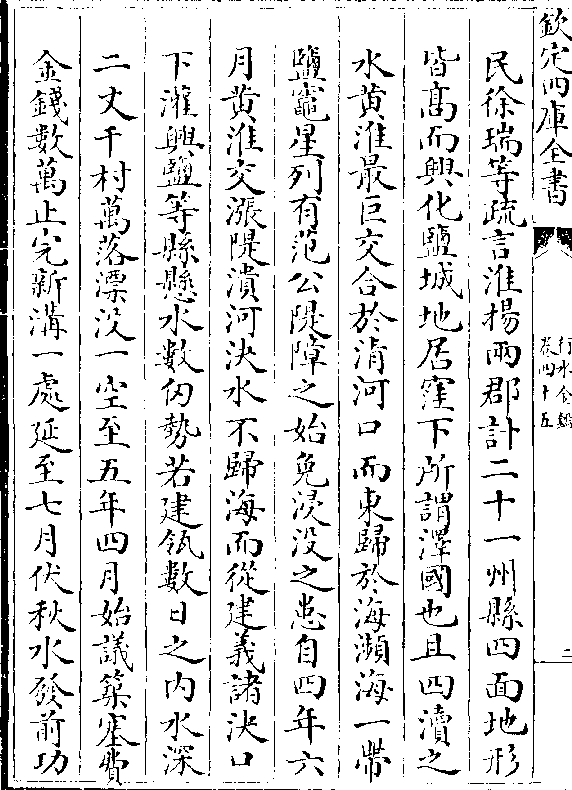 欽定四庫全書
行水金鑑
卷四十五
二
民徐瑞等疏言淮楊兩郡計二十一州縣四面地形
皆高而興化鹽城地居窪下所謂澤國也且四瀆之
水黄淮最巨交合於淸河口而東歸於海瀕海一帶
鹽竈星列有范公隄障之始免浸没之患自四年六
月黄淮交漲隄潰河決水不歸海而從建義諸決口
下灌興鹽等縣懸水數仞勢若建瓴數日之内水深
二丈千村萬落漂没一空至五年四月始議築塞費
金錢數萬止完新溝一處延至七月伏秋水發前功